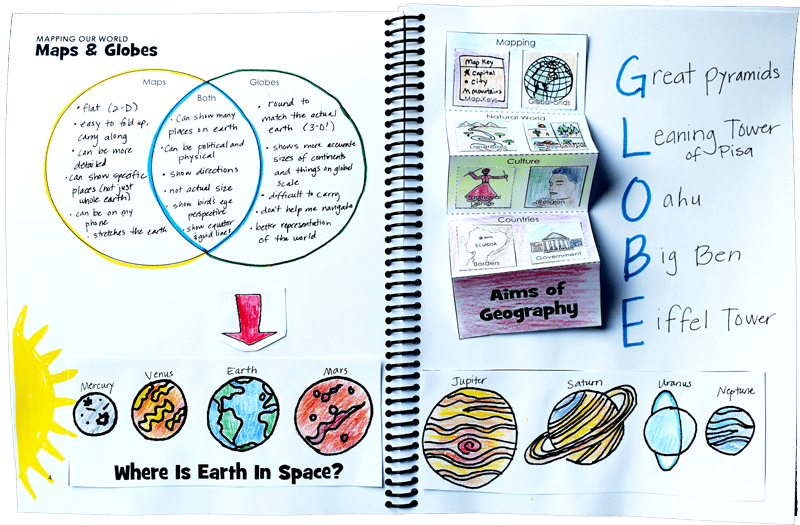 MAPPING OUR WORLD
Maps & Globes
Maps
• flat (2-D)
• easy to fold up,
carry along
• can be more
detailed
• can show specific
places (not just
whole earth)
• can be on my
phone
• stretches the earth
Both
• Can show many
places on earth
• Can be political and
physical
• show directions
• not actual size
• show bird's eye
perspective
• show equator
& grid lines
Globes
• round to
match the actual
earth (3-D!)
• shows more accurate
sizes of continents
and things on global
scale
• difficult to carry
• don't help me navigate
• better representation
of the world
Mercury
Venus
Earth
Mars
Where Is Earth In Space?
4
Mapping
Map Key
Capital
• City
Mountains
Map Keys
Global Grids
Natural World
Culture
Religion
Countries
ECUADOR
Borders
Government
Aims of
Geography
Great pyramids
Leaning Tower
of Pisa
Oahu
Big Ben
Eiffel Tower
Jupiter
Saturn
Uranus
Neptune